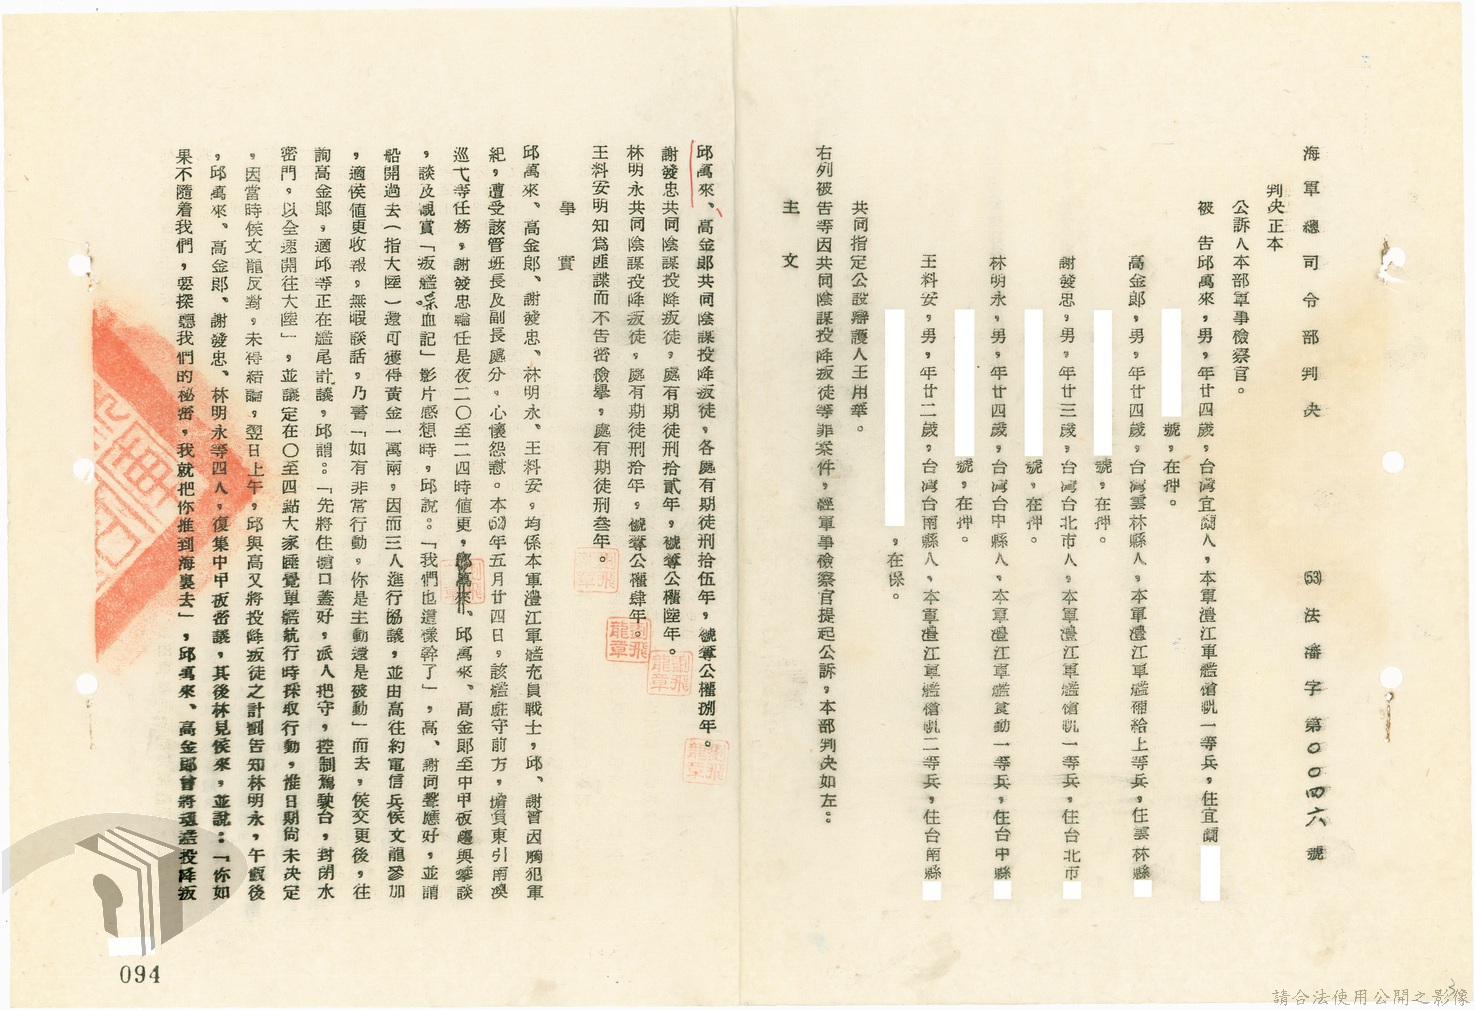 海軍總司令部判決 (53)法濤字第〇〇四六號
判決正本
公訴人本部軍事檢察官。
被告邱萬來,男,年廿四歲,台灣宜蘭人,本軍澧江軍艦槍帆一等兵,住宜蘭
號,在押。
高金郎,男,年廿四歲,台灣雲林縣人,本軍澧江軍艦補給上等兵,住雲林縣
號,在押。
謝發忠,男,年廿三歲,台灣台北市人,本軍澧江軍艦槍帆一等兵,住台北市
號,在押。
林明永,男,年廿四歲,台灣台中縣人,本軍澧江軍艦食勤一等兵,住台中縣
號,在押。
王料安,男,年廿二歲,台灣台南縣人,本軍澧江軍艦槍帆二等兵,住台南縣
,在保。
共同指定公設辯護人王用華。
右列被告等因共同陰謀投降叛徒等罪案件,經軍事檢察官提起公訴,本部判決如左:
主文
邱萬來、高金郎共同陰謀投降叛徒,各處有期徒刑拾伍年,褫奪公權捌年。
謝發忠共同陰謀投降叛徒,處有期徒刑拾貳年,褫奪公權陸年。
林明永共同陰謀投降叛徒,處有期徒刑拾年,褫奪公權肆年。
王料安明知為匪諜而不告密檢舉,處有期徒刑叁年。
事實
邱萬來、高金郎、謝發忠、林明永、王料安,均係本軍澧江軍艦充員戰士,邱、謝曾因觸犯軍
紀,遭受該管班長及副長處分,心懷怨懟。本(52)年五月廿四日,該艦駐守前方,擔負東引南澳
巡弋等任務,謝發忠輪任是夜二〇至二四時值更,邱萬來、高金郎至中甲板邊與攀談
,談及觀賞「叛艦喋血記」影片感想時,邱說:「我們也這樣幹了」,高、謝同聲應好,並謂
船開過去(指大陸)還可獲得黃金一萬兩,因而三人進行協議,並由高往約電信兵侯文龍參加
,適侯值更收報,無暇談話,乃書「如有非常行動,你是主動還是被動」而去,侯交更後,往
詢高金郎,適邱等正在艦尾計議,邱謂:「先將住艙口蓋好,派人把守,控制駕駛台,封閉水
密門,以全速開往大陸」,並議定在〇至四點大家睡覺單艦航行時採取行動,惟日期尚未決定
,因當時侯文龍反對,未得結論,翌日上午,邱與高又將投降叛徒之計劃告知林明永,午餐後
,邱萬來、高金郎、謝發忠、林明永等四人,復集中甲板密議,其後林見侯來,並說:「你如
果不隨着我們,要探聽我們的秘密,我就把你推到海裏去」,邱萬來、高金郎曾將艦投降叛
劉飛龍章
劉飛龍章
劉飛龍章
094
3
請合法使用公開之影像